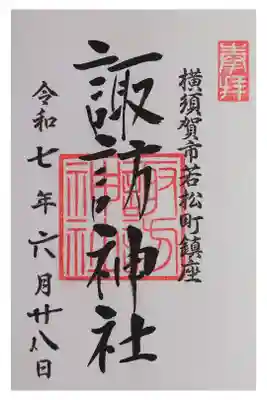 奉拝
横須賀市若松町鎮座
諏訪神社
諏訪神社
令和七年六月廿八日